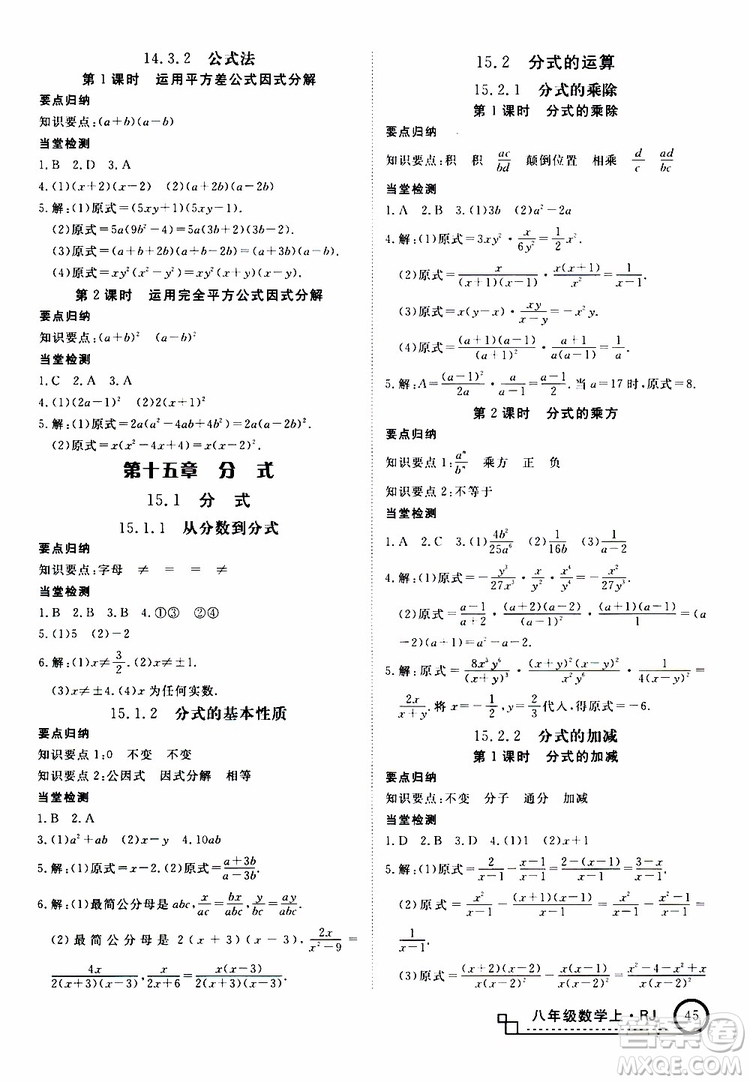 14.3.2 公式法
第1课时 运用平方差公式因式分解
要点归纳
知识要点:(a+b)(a-b)
当堂检测
1.B 2.D 3.A
4.(1)(x+2)(x-2) (2)(a+2b)(a-2b)
5.解:(1)原式=(5xy+1)(5xy-1).
(2)原式=5a(9b²-4)=5a(3b+2)(3b-2).
(3)原式=(a+b+2b)(a+b-2b)=(a+3b)(a-b).
(4)原式=xy²(x²-y²)=xy²(x+y)(x-y).
第2课时 运用完全平方公式因式分解
要点归纳
知识要点:(a+b)² (a-b)²
当堂检测
1.C 2.D 3.A
4.(1)(2a-1)² (2)(x-2y)²
5.解:(1)原式=2a(a²-4ab+4b²)=2a(a-2b)².
(2)原式=x(x²-2x+1)=x(x-1)².
第十五章 分 式
15.1 分 式
15.1.1 从分数到分式
要点归纳
知识要点:字母 ≠ = = ≠
当堂检测
1.B 2.A 3.D 4.①③ ②④
5.(1)5 (2)-2
6.解:(1)x≠3/2. (2)x≠±1.
(3)x≠±1.(4)x为任何实数.
15.1.2 分式的基本性质
要点归纳
知识要点1:0 不变 不变
知识要点2:公因式 因式分解 相等
当堂检测
1.B 2.A
3.(1)a²+ab (2)x-y 4.10ax
5.解:(1)原式=x-2.(2)原式=(a+3b)/(a-3b).
6.解:(1)最简公分母是abc,x/ac=bx/abc,y/bc=ay/abc.
(2)最简公分母是2(x+3)(x-3),2x/(x²-9)=
4x/2(x+3)(x-3),x/(2x+6)=x(x-3)/2(x+3)(x-3).
15.2 分式的运算
15.2.1 分式的乘除
第1课时 分式的乘除
要点归纳
知识要点:积 积 ac/bd 颠倒位置 相乘 d/c ad/bc
当堂检测
1.A 2.B 3.(1)3b (2)a²-2a
4.解:(1)原式=3xy²·x/6y²=1/2x².
(2)原式=x/(x+1)(x-1)·x(x+1)/x²=1/(x-1).
(3)原式=x(y-x)·xy/(x-y)=-x²y.
(4)原式=(a+1)(a-1)/(a-1)²·(a+1)/a(a+1)=(a+1)/a(a-1).
5.解:A=(a-1)²/2a·a/(a-1)=(a-1)/2.当a=17时,原式=8.
第2课时 分式的乘方
要点归纳
知识要点1:aⁿ/bⁿ 乘方 正 负
知识要点2:不等于
当堂检测
1.A 2.C 3.(1)4b²/25a⁶ (2)1/16b (3)1/(a-2)
4.解:(1)原式=-y³/27x³·x²/y²·x/y=-1/27.
(2)原式=(a-1)/(a+2)·(a+2)(a-2)/(a-1)²·(a+1)(a-1)=(a
-2)(a+1)=a²-a-2.
5.解:原式=8x³y⁶/(x+y)³·(x+y)²(x-y)²/(x-y)²·1/4(xy³)²=
2x/(x+y).将x=-1/2,y=1/3代入,得原式=-6.
15.2.2 分式的加减
第1课时 分式的加减
要点归纳
知识要点:不变 分子 通分 加减
当堂检测
1.D 2.C 3.A 4.(1)1 (2)x+1
5.解:(1)原式=2/(x-1)-(x-1)/(x-1)=(2-x+1)/(x-1)=(3-x)/(x-1).
(2)原式=x²/(x-1)-(x+1)(x-1)/(x-1)=(x²-x²+1)/(x-1)=
1/(x-1).
(3)原式=(x+2)(x-2)/(x+2)-x²/(x+2)=(x²-4-x²)/(x+2)=
八年级数学上·RJ 45